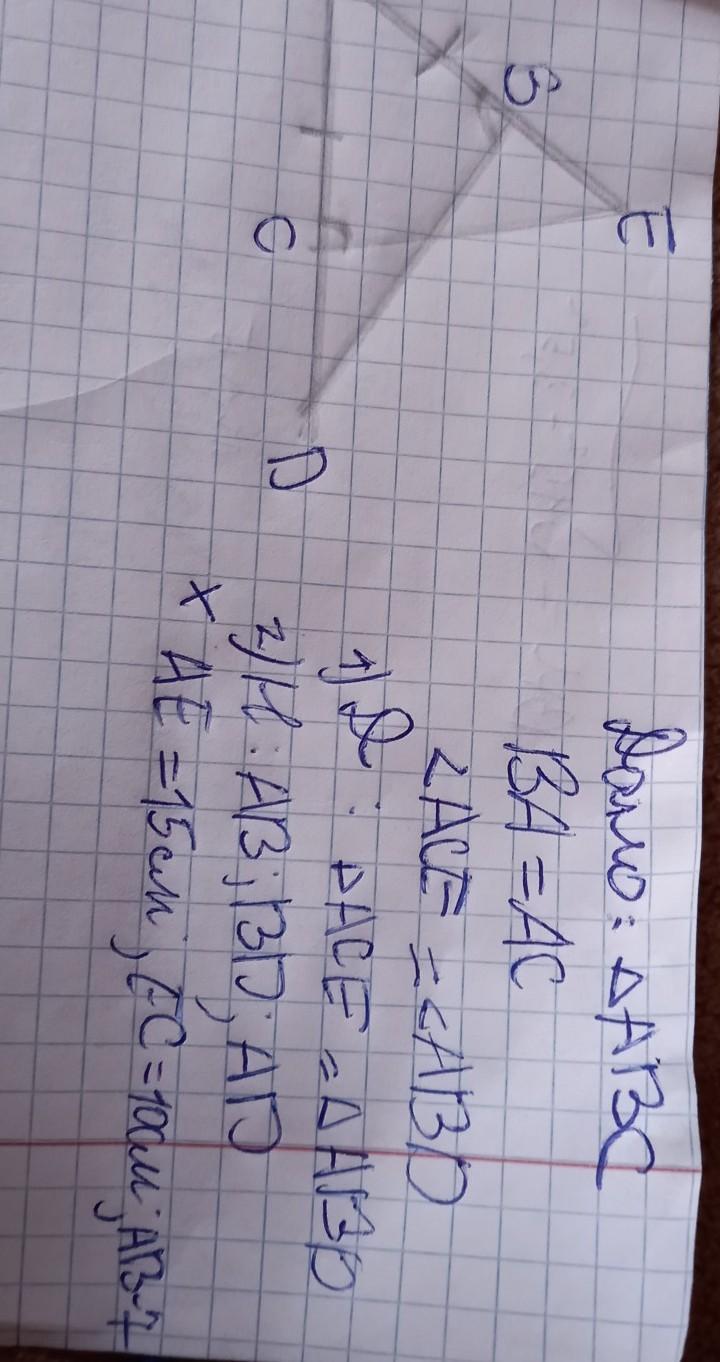 B
E
C
D
Дано: ΔABC
BA = AC
∠ACE = ∠ABD
1) Д: ΔACE = ΔABD
2) Н: AB; BD; AD
x AE = 15см, EC = 10см; AB-7